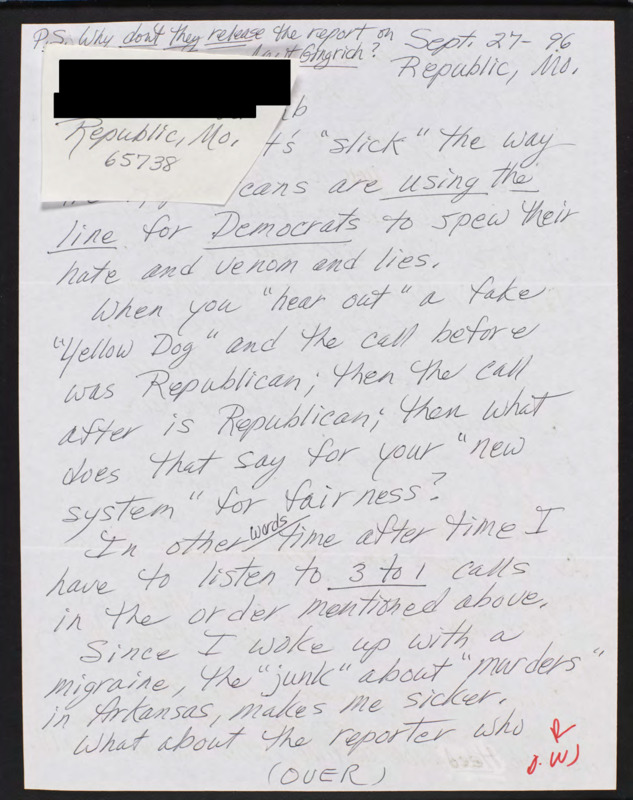 P.S. Why don't they release the report on
Gingrich?
Sept. 27- 96
Republic, Mo.
Republic, Mo.
65738
t's "slick" the way
cans are using the
line for Democrats to spew their
hate and venom and lies.
When you "hear out" a fake
"Yellow Dog" and the call before
was Republican; then the call
after is Republican; then what
does that say for your "new
system" for fairness?
In other words time after time I
have to listen to 3 to 1 calls
in the order mentioned above.
Since I woke up with a
migraine, the "junk" about "murders"
in Arkansas, makes me sicker.
What about the reporter who
(OVER)